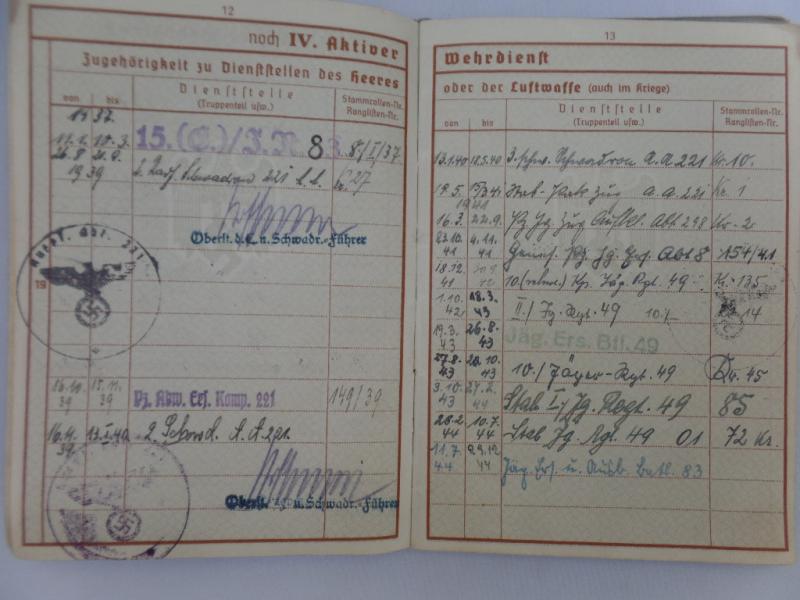 12
noch IV. Aktiver
Zugehörigkeit zu Dienststellen des Heeres
von bis Dienststelle (Truppenteil usw.) Stammrollen-Nr. Ranglisten-Nr.
1937
10.3. 15.(E.)/J.R. 83. 8/I/37
26.8 21.9. 221
1939 27
Oberlt. d. L. u. Schwadr.-Führer
Aufkl. Abt. 221
19
39 15.11. 39 Pz. Abw. Ers. Komp. 221 149/39
39 13.I.40 2. Schwd. A.A. 221
Oberlt. u. Schwadr.-Führer
13
Wehrdienst
oder der Luftwaffe (auch im Kriege)
von bis Dienststelle (Truppenteil usw.) Stammrollen-Nr. Ranglisten-Nr.
13.1.40 18.5.40 3. schw. Schwadron A.A. 221 Nr. 10.
19.5. 1941 Zug A.A. 221 Nr. 1
16.3. 22.9. Pz Jg Zug Aufkl. Abt 298 Nr. 2
23.10. 41 4.11. 41 Pz. Jg. Ers. Abt 8 154/41
18.12. 41 Jäg. Rgt. 49 Nr. 135
1.10. 42 18.3. 43 II./Jg. Rgt. 49 14
19.3. 43 26.8. 43 Jäg. Ers. Btl. 49
27.8. 43 20.10. 43 10./Jäger-Rgt. 49 45
3.10. 43 27.2. 44 Stab I./Jg. Regt. 49 85
28.2. 44 10.7. 44 Stab Jg. Rgt. 49 01 72 Kr.
11.7. 44 29.12. 44 Jäg. Ers. u. Ausb. Batl. 83